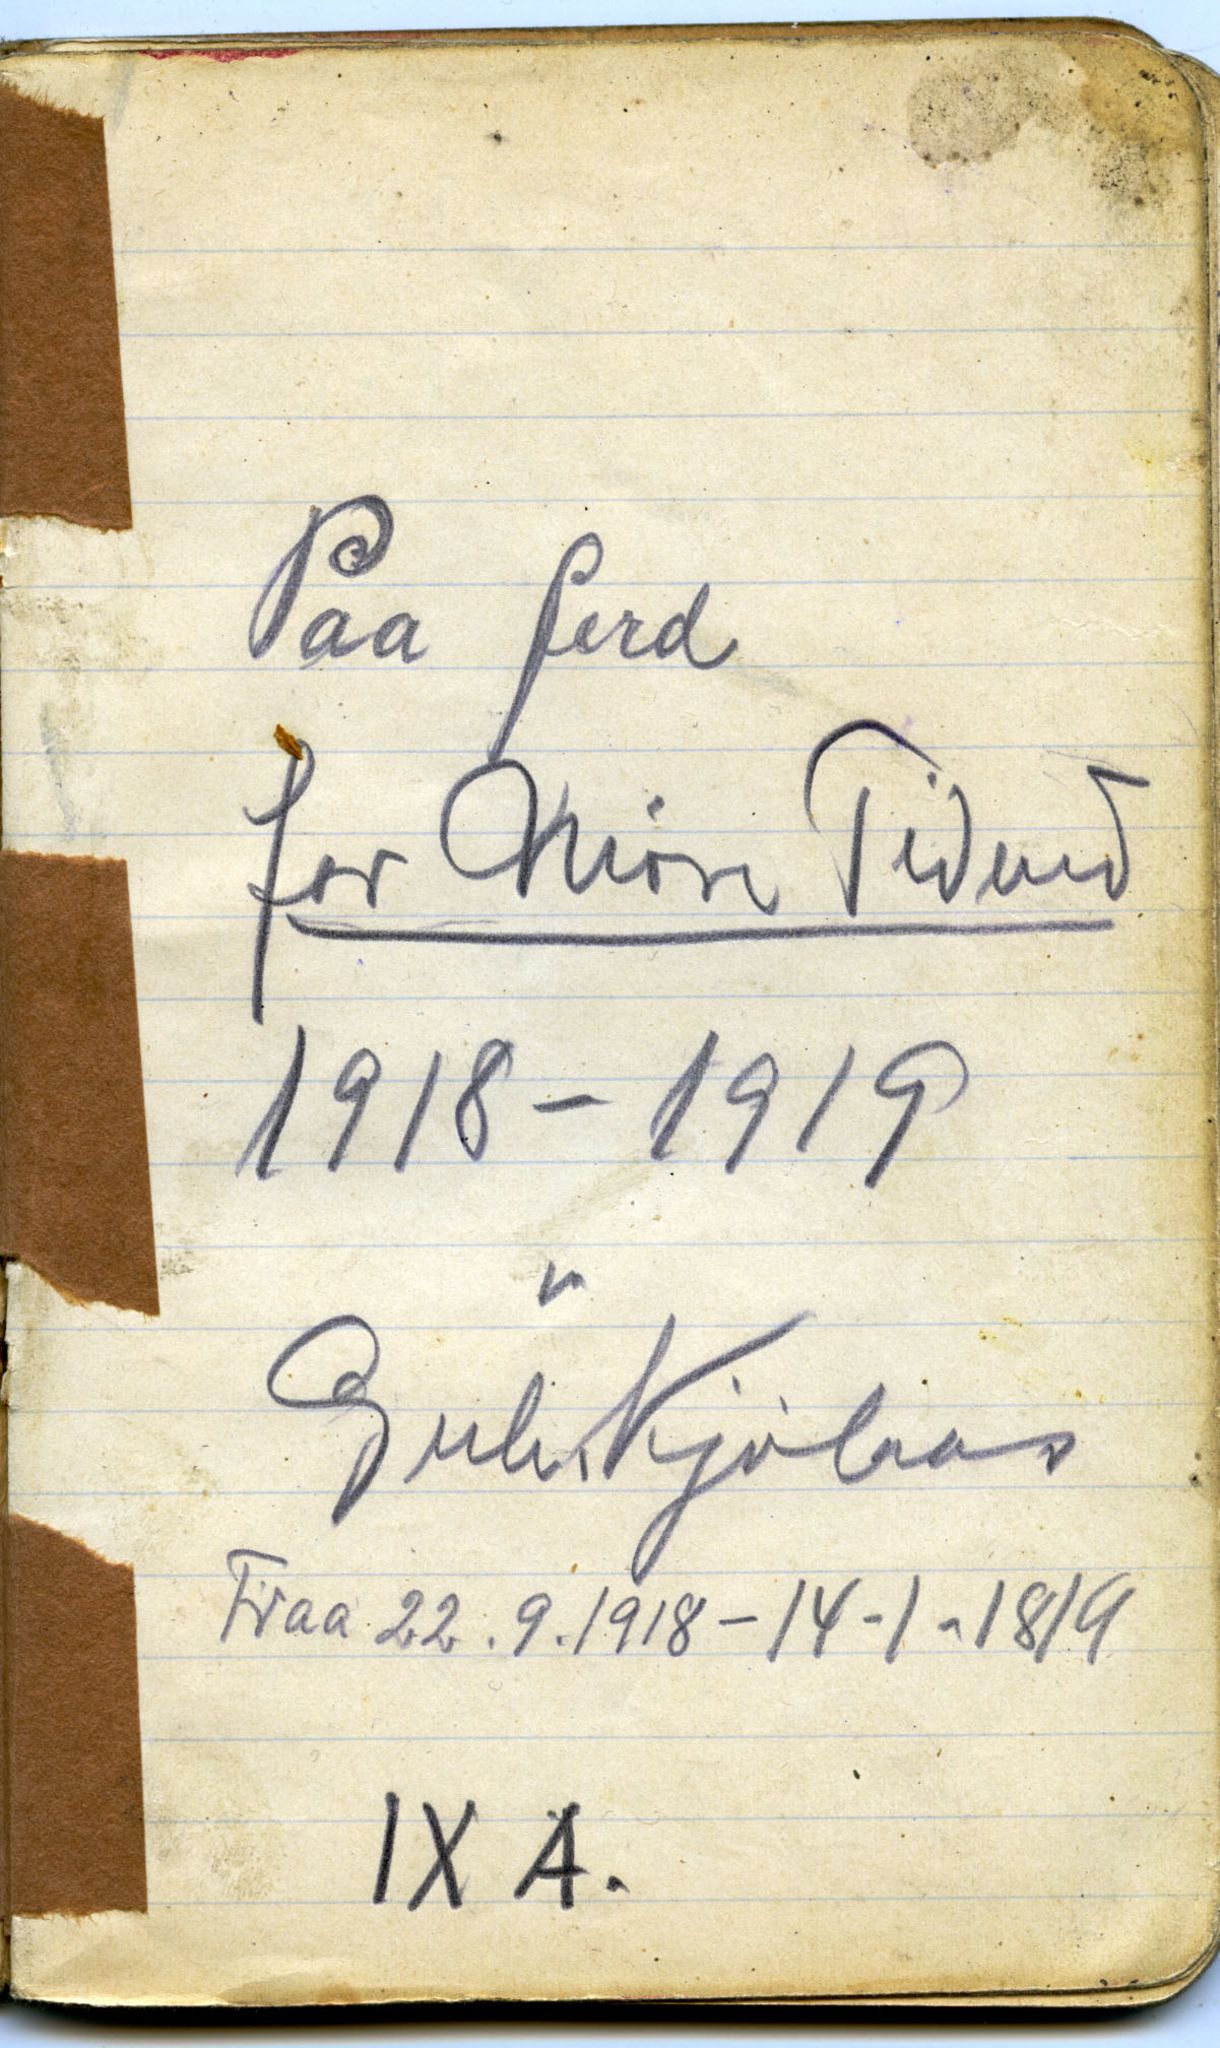 Paa ferd
for Möre Tidend
1918 – 1919
Kjölaas
Fraa 22.9.1918 – 14-1-1819
IX A.